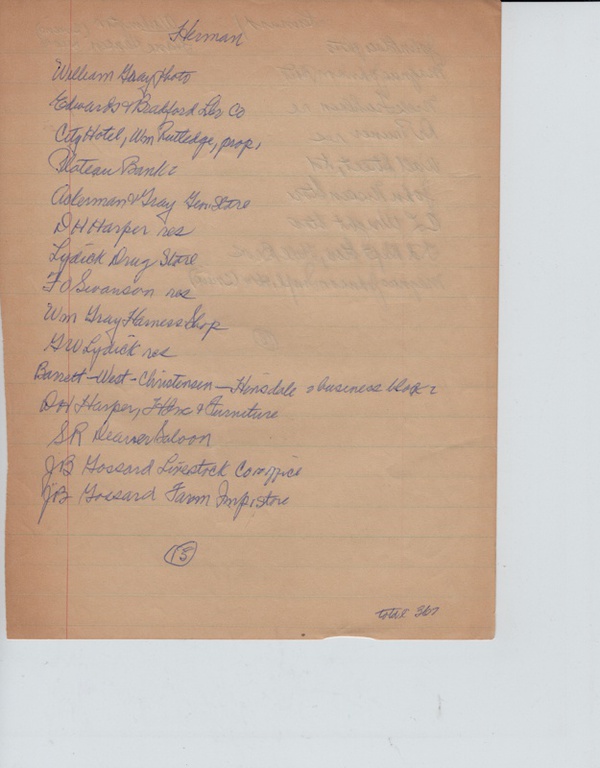 Herman
William Gray Photo
Edwards & Bradford Lbr Co
City Hotel, Wm Rutledge, prop.
Plateau Bank
Ackerman & Gray Gen Store
D H Harper res
Lydick Drug Store
F O Swanson res
Wm Gray Harness Shop
G W Lydick res
Barrett-West-Christensen-Hinsdale business block
D H Harper, & Furniture
S R Deaver Saloon
J B Gossard Livestock Co office
J B Gossard Farm Imp. store
15
total 267